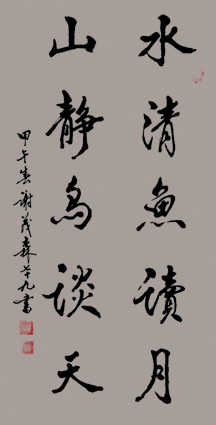 水清魚讀月
山靜鳥談天
甲午春谢茂森草九書